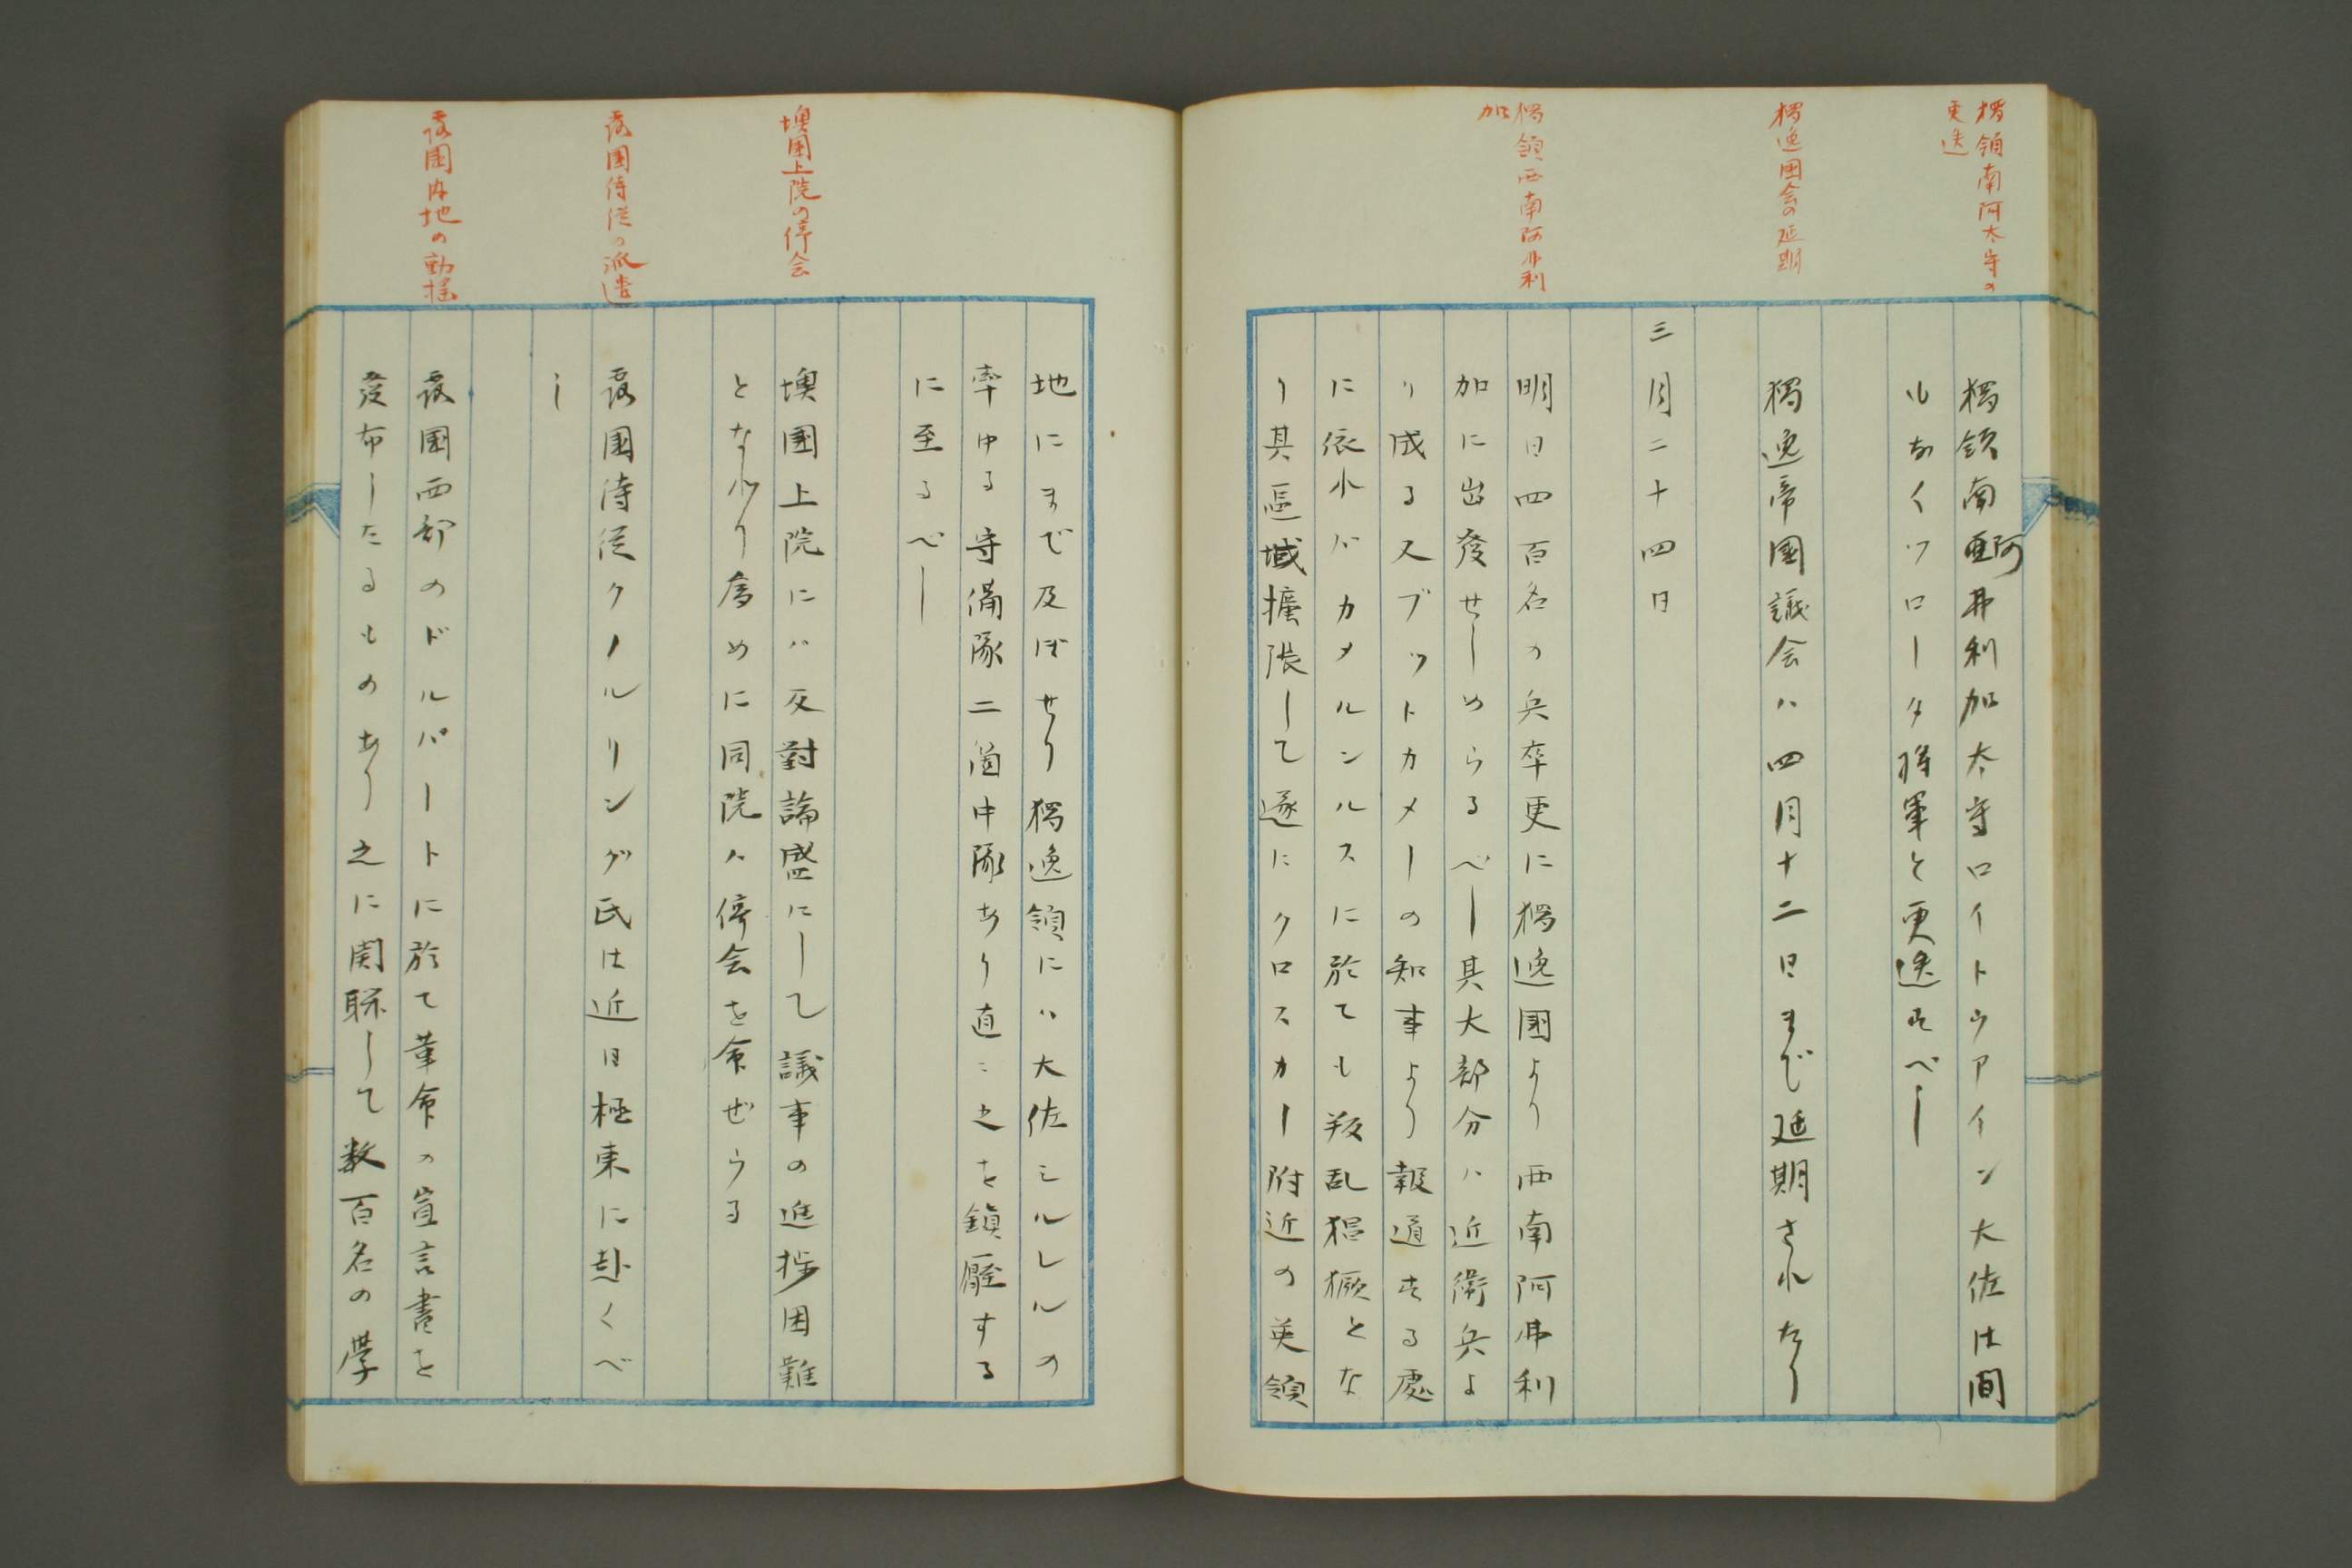 獨領南阿太守の
更迭
獨領南阿弗利加太守ロイトウアイン大佐は間
もなくフロータ將軍と更迭すべし
獨逸國会の延期
獨逸帝國議会ハ四月十二日まで延期されたり
三月二十四日
獨領西南阿弗利
加
明日四百名の兵卒更に獨逸國より西南阿弗利
加に出發せしめらるべし其大部分ハ近衛兵よ
り成るスブットカメーの知事より報道する處
に依れバカメルンルスに於ても叛乱猖獗とな
り其區域擴張して遂にクロスカー附近の英領
地にまで及ぼせり獨逸領にハ大佐ミルレルの
率ゆる守備隊二箇中隊あり直ニ之を鎮壓する
に至るべし
墺國上院の停会
墺國上院にハ反對論盛にして議事の進捗困難
となれり為めに同院ハ停会を命ぜらる
露國侍従の派遣
露國侍従クノルリング氏は近日極東に赴くべ
し
露國内地の動揺
露國西部のドルパートに於て革命の宣言書を
發布したるものあり之に関聯して数百名の學